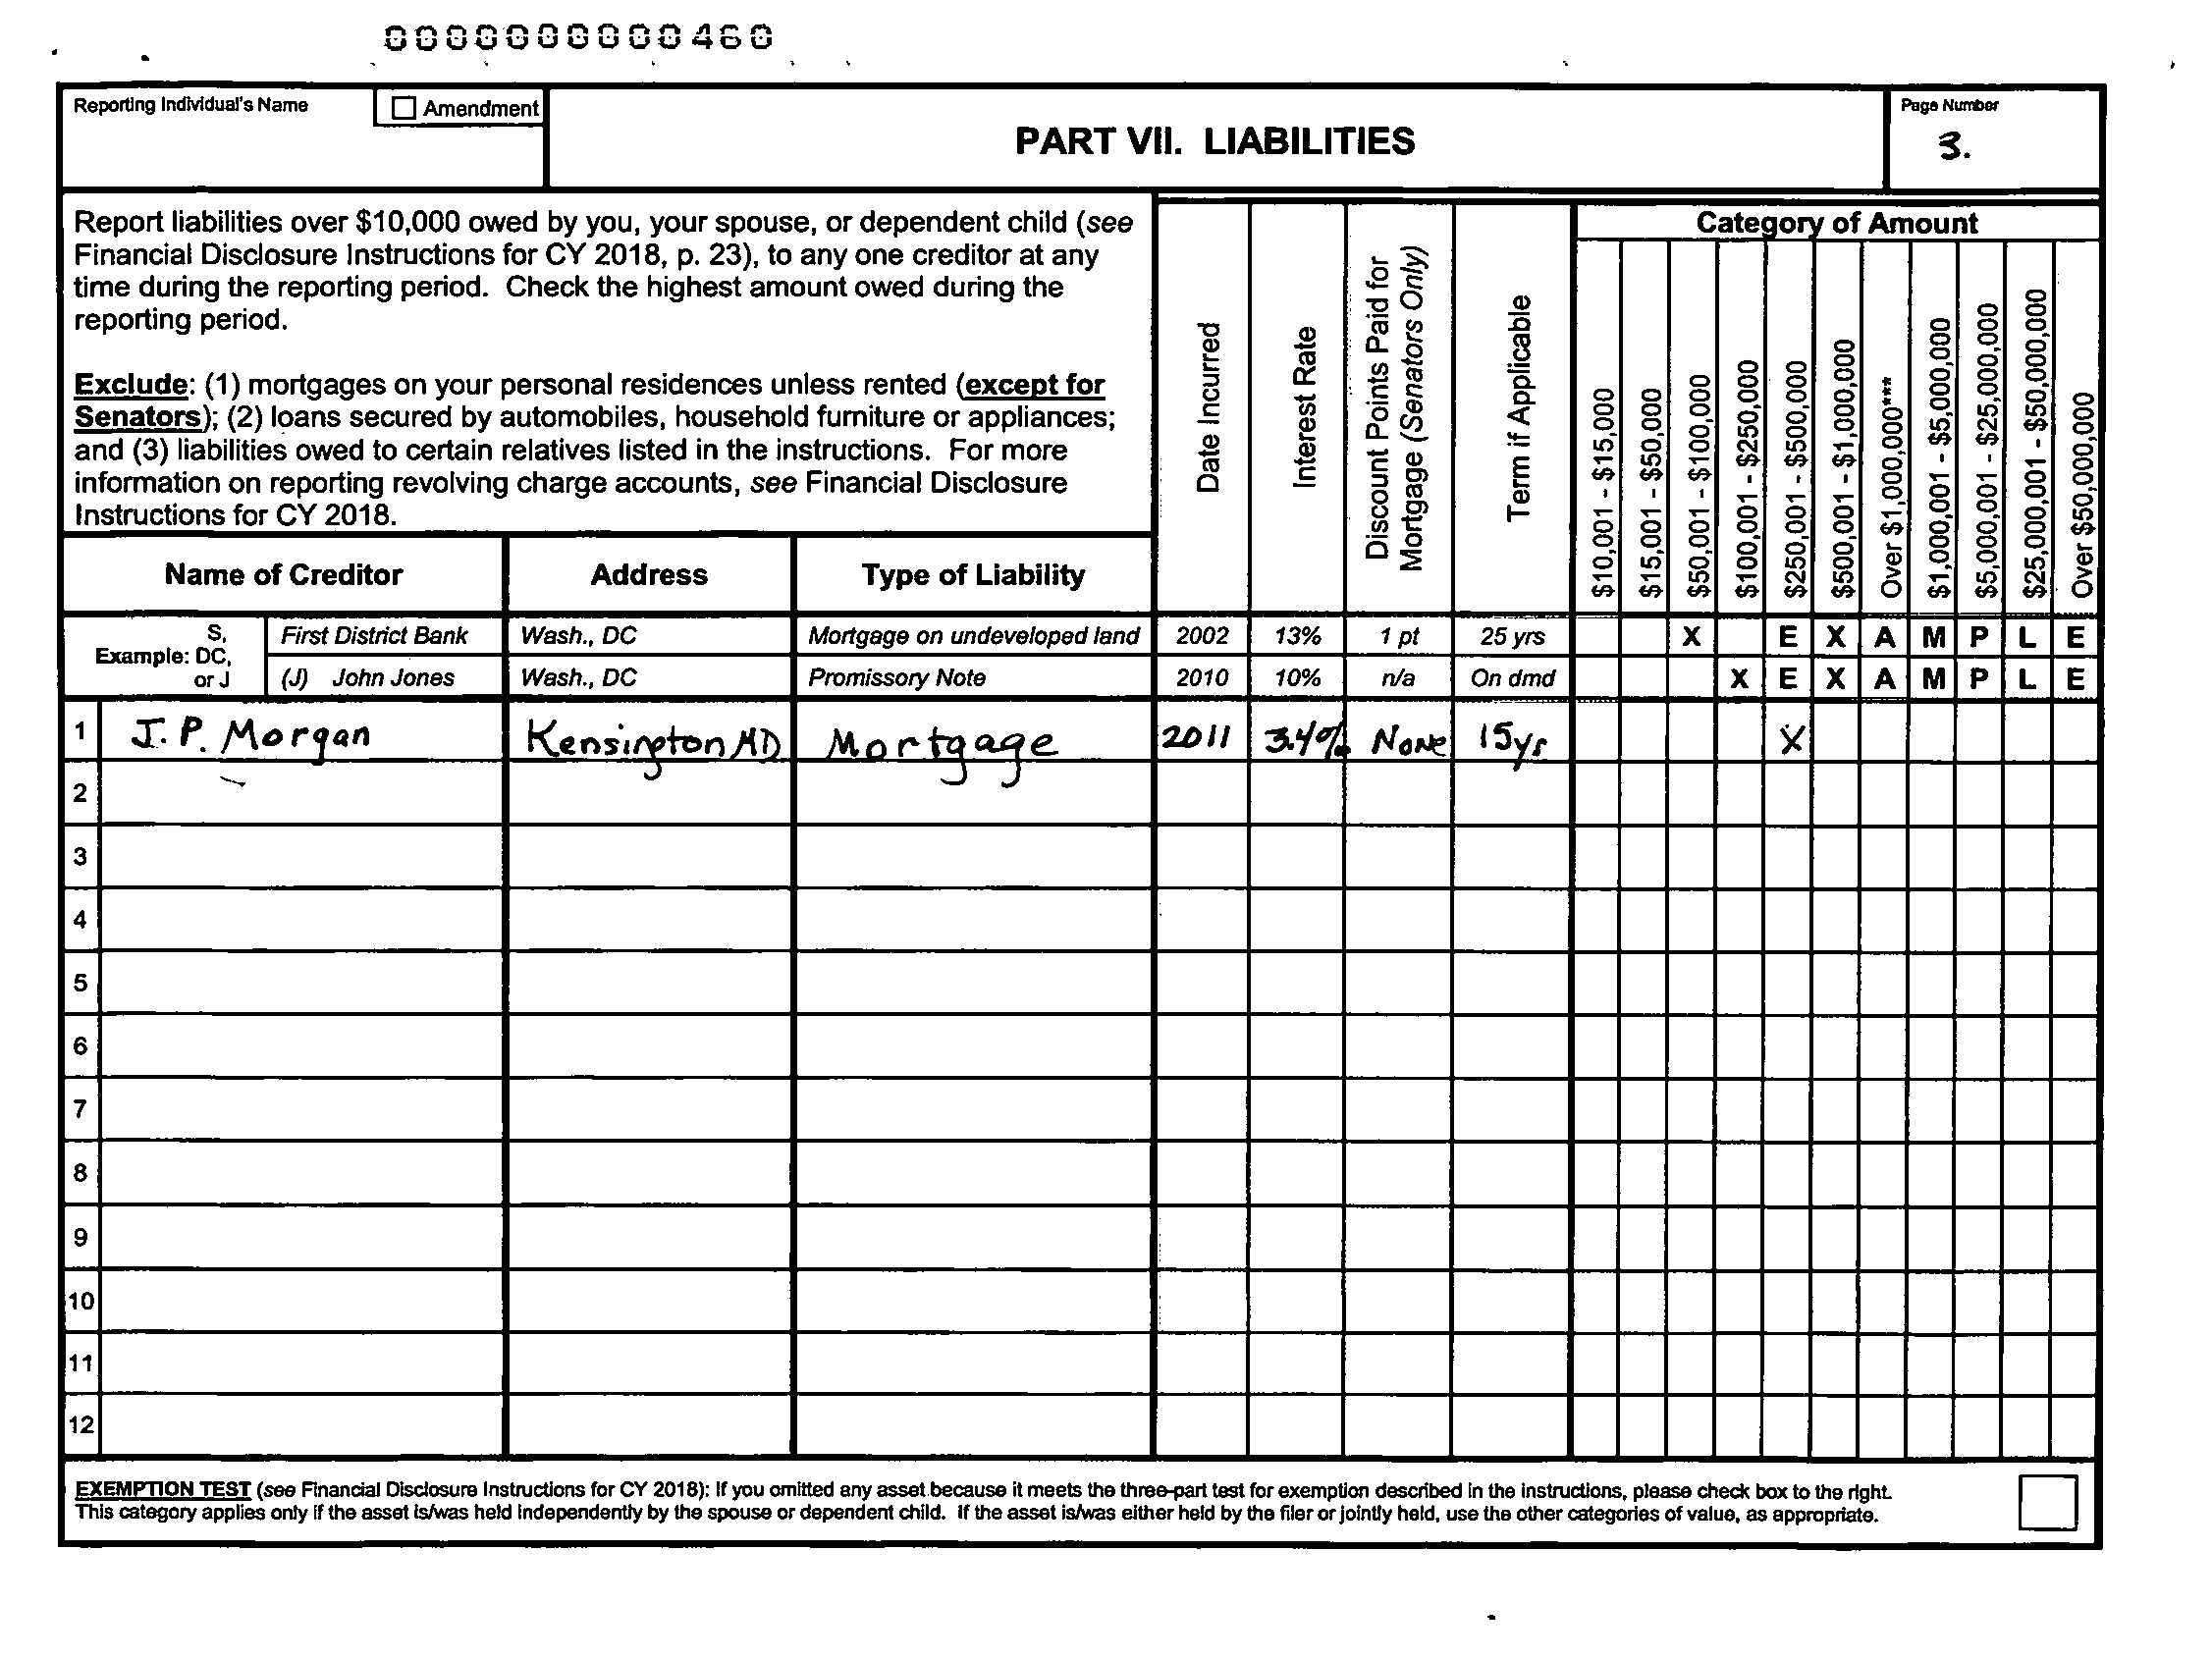 0000000000460
Reporting Individual's Name
Amendment
PART VII. LIABILITIES
Page Number
3.
Report liabilities over $10,000 owed by you, your spouse, or dependent child (see
Financial Disclosure Instructions for CY 2018, p. 23), to any one creditor at any
time during the reporting period. Check the highest amount owed during the
reporting period.
Exclude: (1) mortgages on your personal residences unless rented (except for
Senators); (2) loans secured by automobiles, household furniture or appliances;
and (3) liabilities owed to certain relatives listed in the instructions. For more
information on reporting revolving charge accounts, see Financial Disclosure
Instructions for CY 2018.
Name of Creditor Address Type of Liability
Date Incurred
Interest Rate
Discount Points Paid for
Mortgage (Senators Only)
Term if Applicable
Category of Amount
$10,001 - $15,000
$15,001 - $50,000
$50,001 - $100,000
$100,001 - $250,000
$250,001 - $500,000
$500,001 - $1,000,000
Over $1,000,000***
$1,000,001 - $5,000,000
$5,000,001 - $25,000,000
$25,000,001 - $50,000,000
Over $50,000,000
Example: S,
DC,
or J
First District Bank Wash., DC Mortgage on undeveloped land 2002 13% 1 pt 25 yrs X E X A M P L E
(J) John Jones Wash., DC Promissory Note 2010 10% n/a On dmd X E X A M P L E
1 J. P. Morgan Kensington MD Mortgage 2011 3.4% None 15yr X
2
3
4
5
6
7
8
9
10
11
12
EXEMPTION TEST (see Financial Disclosure Instructions for CY 2018): If you omitted any asset because it meets the three-part test for exemption described in the instructions, please check box to the right.
This category applies only if the asset is/was held independently by the spouse or dependent child. If the asset is/was either held by the filer or jointly held, use the other categories of value, as appropriate.